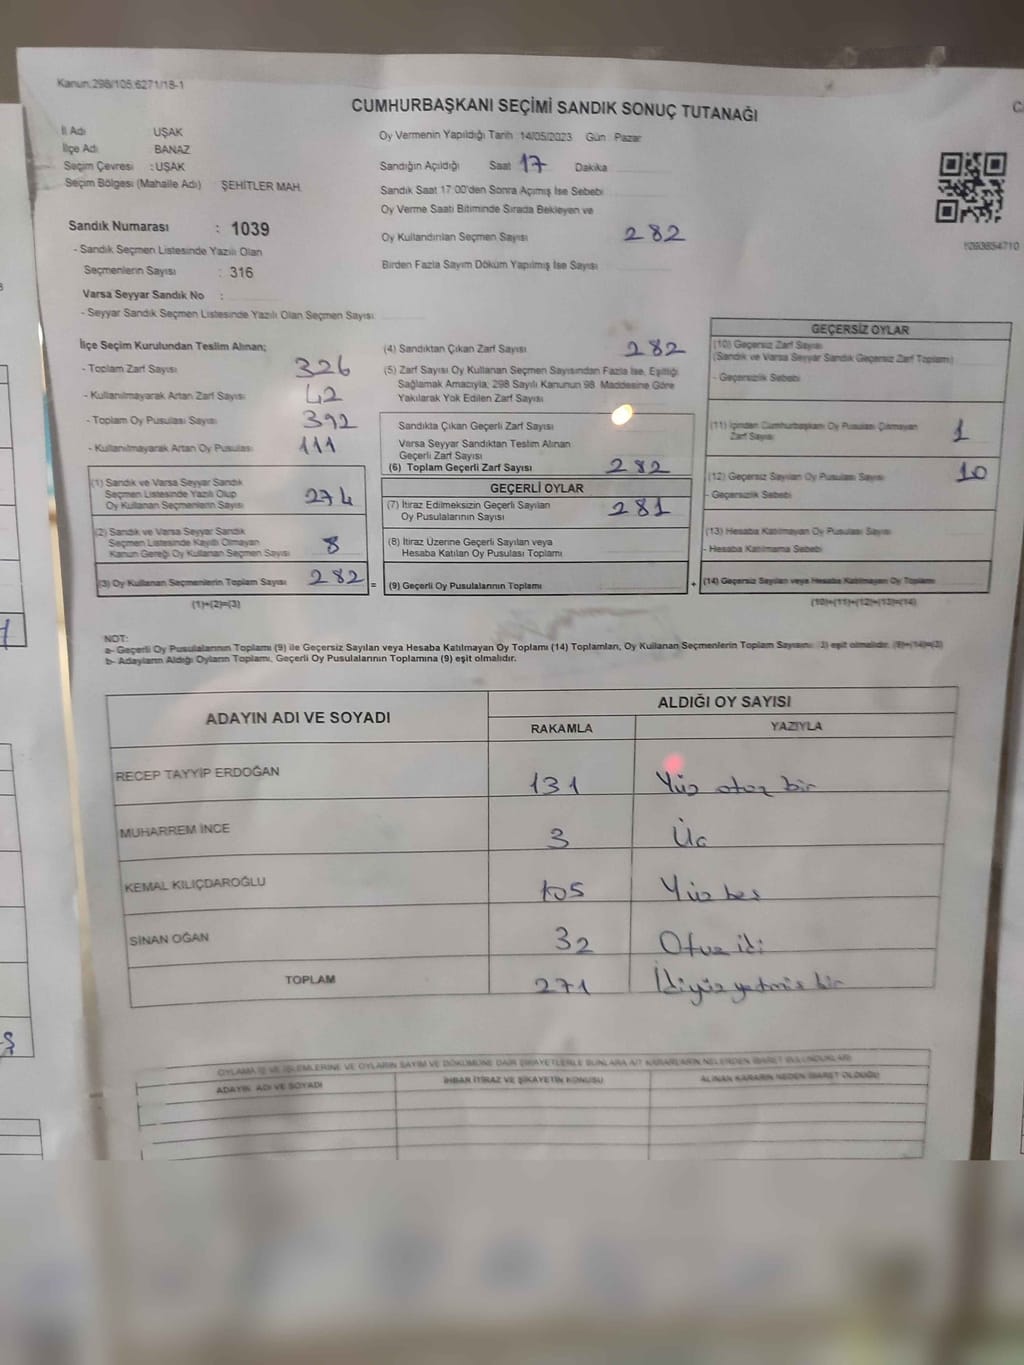 Kanun.298/105.6271/18-1
CUMHURBAŞKANI SEÇİMİ SANDIK SONUÇ TUTANAĞI
İl Adı UŞAK
İlçe Adı BANAZ
Seçim Çevresi : UŞAK
Seçim Bölgesi (Mahalle Adı) ŞEHİTLER MAH.
Oy Vermenin Yapıldığı Tarih 14/05/2023 Gün : Pazar
Sandığın Açıldığı Saat 17 Dakika
Sandık Saat 17 00'den Sonra Açımış İse Sebebi
Oy Verme Saati Bitiminde Sırada Bekleyen ve
Oy Kullandırılan Seçmen Sayısı 282
Birden Fazla Sayım Döküm Yapılmış İse Sayısı
Sandık Numarası : 1039
- Sandık Seçmen Listesinde Yazılı Olan
Seçmenlerin Sayısı : 316
Varsa Seyyar Sandık No :
- Seyyar Sandık Seçmen Listesinde Yazılı Olan Seçmen Sayısı
İlçe Seçim Kurulundan Teslim Alınan;
- Toplam Zarf Sayısı 326
- Kullanılmayarak Artan Zarf Sayısı 42
- Toplam Oy Pusulası Sayısı 392
- Kullanılmayarak Artan Oy Pusulası 111
(1) Sandık ve Varsa Seyyar Sandık
Seçmen Listesinde Yazılı Olup
Oy Kullanan Seçmenlerin Sayısı 274
(2) Sandık ve Varsa Seyyar Sandık
Seçmen Listesinde Kayıtlı Olmayan
Kanun Gereği Oy Kullanan Seçmen Sayısı 8
(3) Oy Kullanan Seçmenlerin Toplam Sayısı 282 =
(1)+(2)=(3)
(4) Sandıktan Çıkan Zarf Sayısı 282
(5) Zarf Sayısı Oy Kullanan Seçmen Sayısından Fazla İse, Eşitliği
Sağlamak Amacıyla, 298 Sayılı Kanunun 98. Maddesine Göre
Yakılarak Yok Edilen Zarf Sayısı
Sandıkta Çıkan Geçerli Zarf Sayısı
Varsa Seyyar Sandıktan Teslim Alınan
Geçerli Zarf Sayısı
(6) Toplam Geçerli Zarf Sayısı 282
GEÇERLİ OYLAR
(7) İtiraz Edilmeksizin Geçerli Sayılan
Oy Pusulalarının Sayısı 281
(8) İtiraz Üzerine Geçerli Sayılan veya
Hesaba Katılan Oy Pusulası Toplamı
(9) Geçerli Oy Pusulalarının Toplamı +
GEÇERSİZ OYLAR
(10) Geçersiz Zarf Sayısı
(Sandık ve Varsa Seyyar Sandık Geçersiz Zarf Toplamı)
- Geçersizlik Sebebi
(11) İçinden Cumhurbaşkanı Oy Pusulası Çıkmayan
Zarf Sayısı 1
(12) Geçersiz Sayılan Oy Pusulası Sayısı 10
- Geçersizlik Sebebi
(13) Hesaba Katılmayan Oy Pusulası Sayısı
- Hesaba Katılmama Sebebi
(14) Geçersiz Sayılan veya Hesaba Katılmayan Oy Toplamı
(10)+(11)+(12)+(13)=(14)
NOT:
a- Geçerli Oy Pusulalarının Toplamı (9) ile Geçersiz Sayılan veya Hesaba Katılmayan Oy Toplamı (14) Toplamları, Oy Kullanan Seçmenlerin Toplam Sayısına (3) eşit olmalıdır. (9)+(14)=(3)
b- Adayların Aldığı Oyların Toplamı, Geçerli Oy Pusulalarının Toplamına (9) eşit olmalıdır.
ADAYIN ADI VE SOYADI ALDIĞI OY SAYISI
RAKAMLA YAZIYLA
RECEP TAYYİP ERDOĞAN 131 Yüz otuz bir
MUHARREM İNCE 3 Üç
KEMAL KILIÇDAROĞLU 105 Yüz beş
SİNAN OĞAN 32 Otuz iki
TOPLAM 271 İkiyüz yetmiş bir
OYLAMA İŞ VE İŞLEMLERİNE VE OYLARIN SAYIM VE DÖKÜMÜNE DAİR ŞİKAYETLERLE BUNLARA AİT KARARLARIN NELERDEN İBARET BULUNDUKLARI
ADAYIN ADI VE SOYADI İHBAR İTİRAZ VE ŞİKAYETİN KONUSU ALINAN KARARIN NEDEN İBARET OLDUĞU